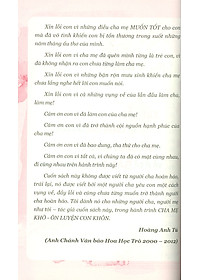 Xin lỗi con vì những điều cha mẹ MUỐN TỐT cho con
mà đã vô tình khiến con bị tổn thương trong suốt những
năm tháng ấu thơ của mình.
Xin lỗi con vì cha mẹ đã quên mình từng là trẻ con, vì
đã không nhận ra con chưa từng làm cha mẹ.
Xin lỗi con vì những bận rộn mưu sinh khiến cha mẹ
chưa từng lắng nghe hết lời con muốn nói.
Xin lỗi con vì cả những vụng về của lần đầu làm cha,
làm mẹ!
Cám ơn con vì đã làm con của cha mẹ!
Cám ơn con vì đã trở thành cội nguồn hạnh phúc của
cha mẹ!
Cám ơn con vì đã bao dung, tha thứ cho cha mẹ.
Cám ơn con vì tất cả, vì chúng ta đã có mặt cùng nhau,
đi cùng nhau trên hành trình này!
Cuốn sách này không được viết từ người cha hoàn hảo,
trái lại, nó được viết bởi một người cha yêu con một cách
vụng về, đầy lỗi và cũng chưa từng muốn trở thành người
cha hoàn hảo. Tôi dành nó cho những cha, người mẹ
như tôi – tác giả cuốn sách này, trong hành trình CHA MẸ
KHỔ - ÔN LUYỆN CON KHÔN.
Hoàng Anh Tú
(Anh Chánh Văn báo Hoa Học Trò 2000 – 2012)